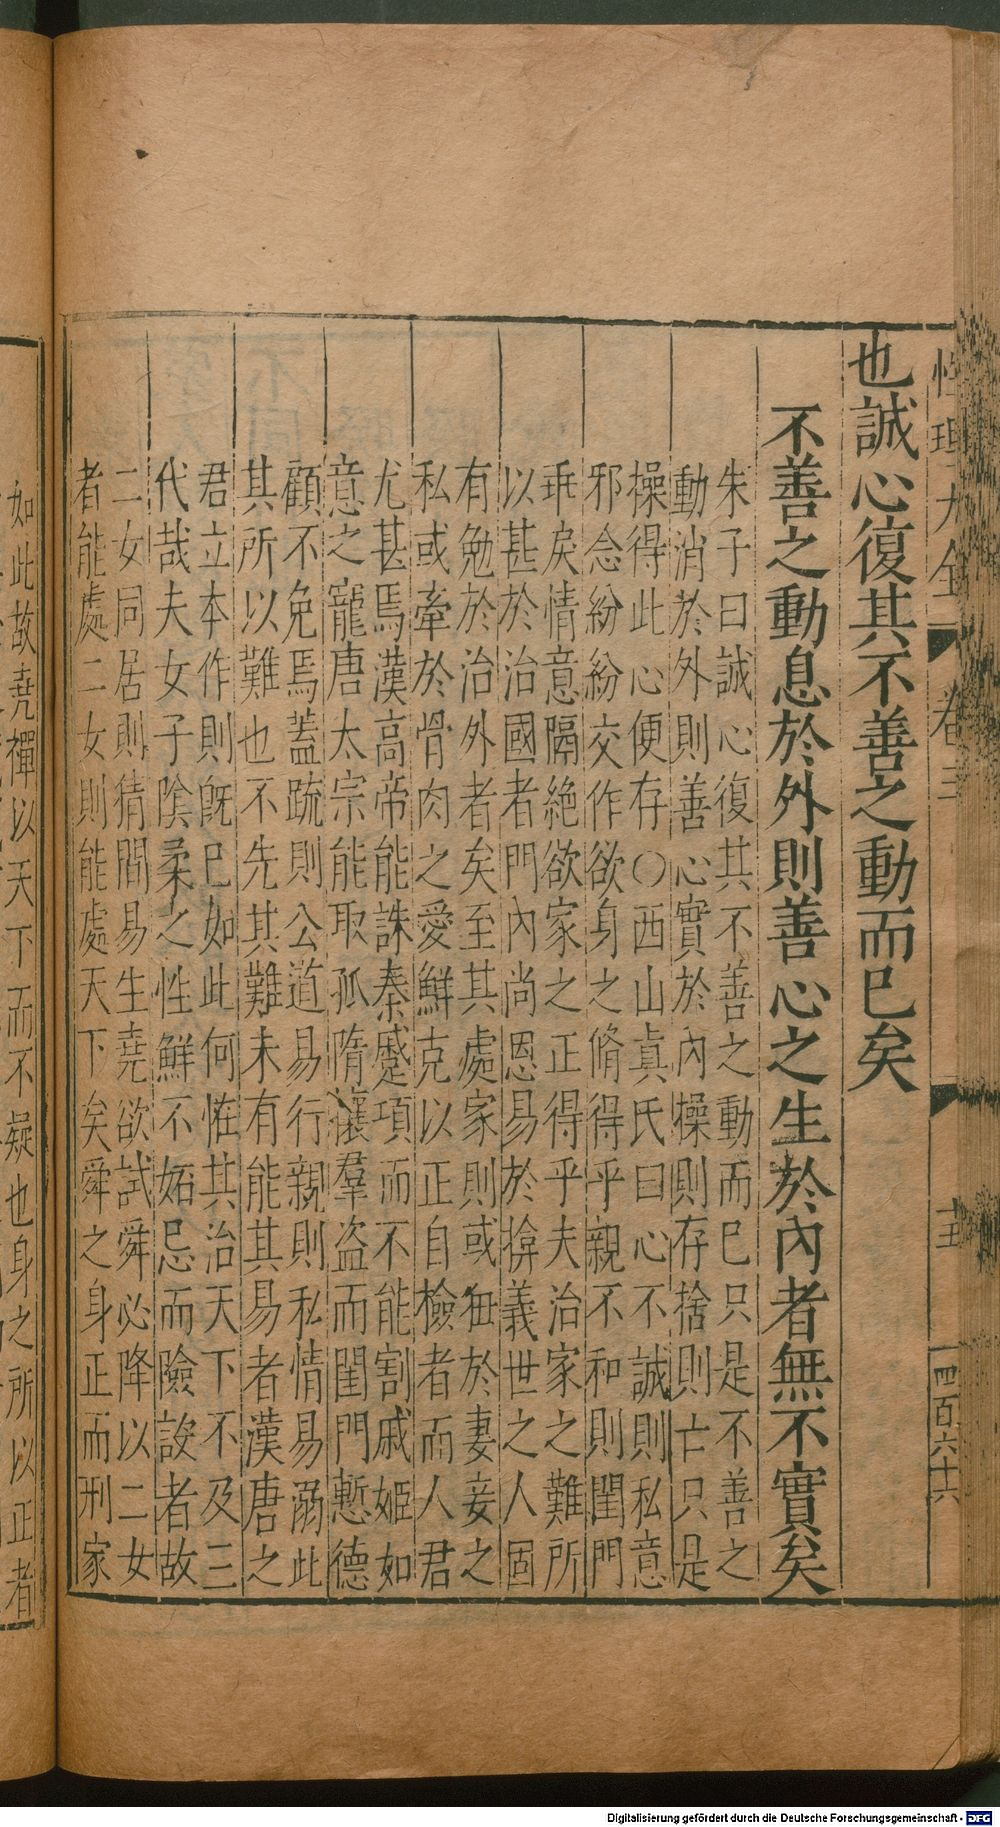 性理大全 卷三 四百六十六
也誠心復其不善之動而已矣
不善之動息於外則善心之生於內者無不實矣
朱子曰誠心復其不善之動而已只是不善之
動消於外則善心實於內操則存捨則亡只是
操得此心便存○西山眞氏曰心不誠則私意
邪念紛紛交作欲身之脩得乎親不和則閨門
乖戾情意隔絶欲家之正得乎夫治家之難所
以甚於治國者門內尚恩易於揜義世之人固
有勉於治外者矣至其處家則或狃於妻妾之
私或牽於骨肉之愛鮮克以正自檢者而人君
尤甚焉漢高帝能誅秦蹙項而不能割戚姬如
意之寵唐太宗能取孤隋攘羣盗而閨門慙德
顧不免焉蓋䟽則公道易行親則私情易溺此
其所以難也不先其難未有能其易者漢唐之
君立本作則旣已如此何恠其治天下不及三
代哉夫女子隂柔之性鮮不妬忌而險詖者故
二女同居則猜間易生堯欲試舜必降以二女
者能處二女則能處天下矣舜之身正而刑家
如此故堯禪以天下而不疑也身之所以正者
Digitalisierung gefördert durch die Deutsche Forschungsgemeinschaft - DFG